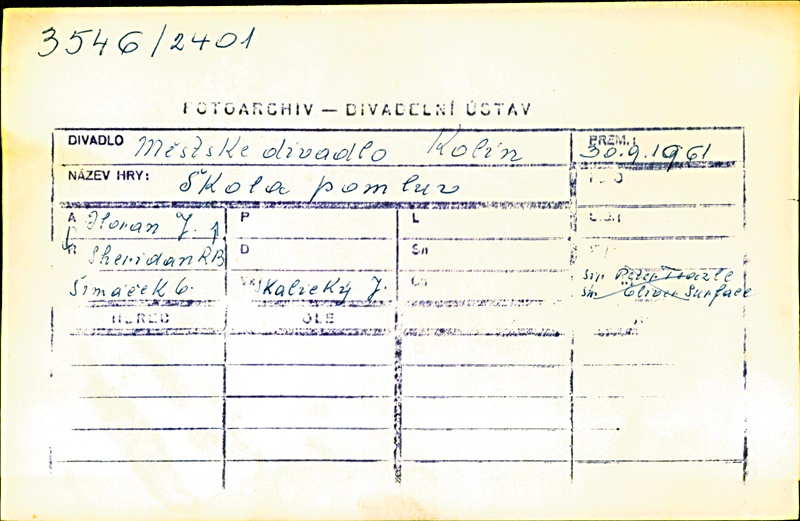 3546/2401
FOTOARCHIV — DIVADELNÍ ÚSTAV
DIVADLO Městske divadlo Kolín
PREM.: 30.9.1961
NÁZEV HRY: Škola pomluv
A Horan J. P L
R Sheridan R B D Sn
Šimáček O. Vk Kalický J. Ch
Sir Peter Teazle
Sir Oliver Surface
HEREC